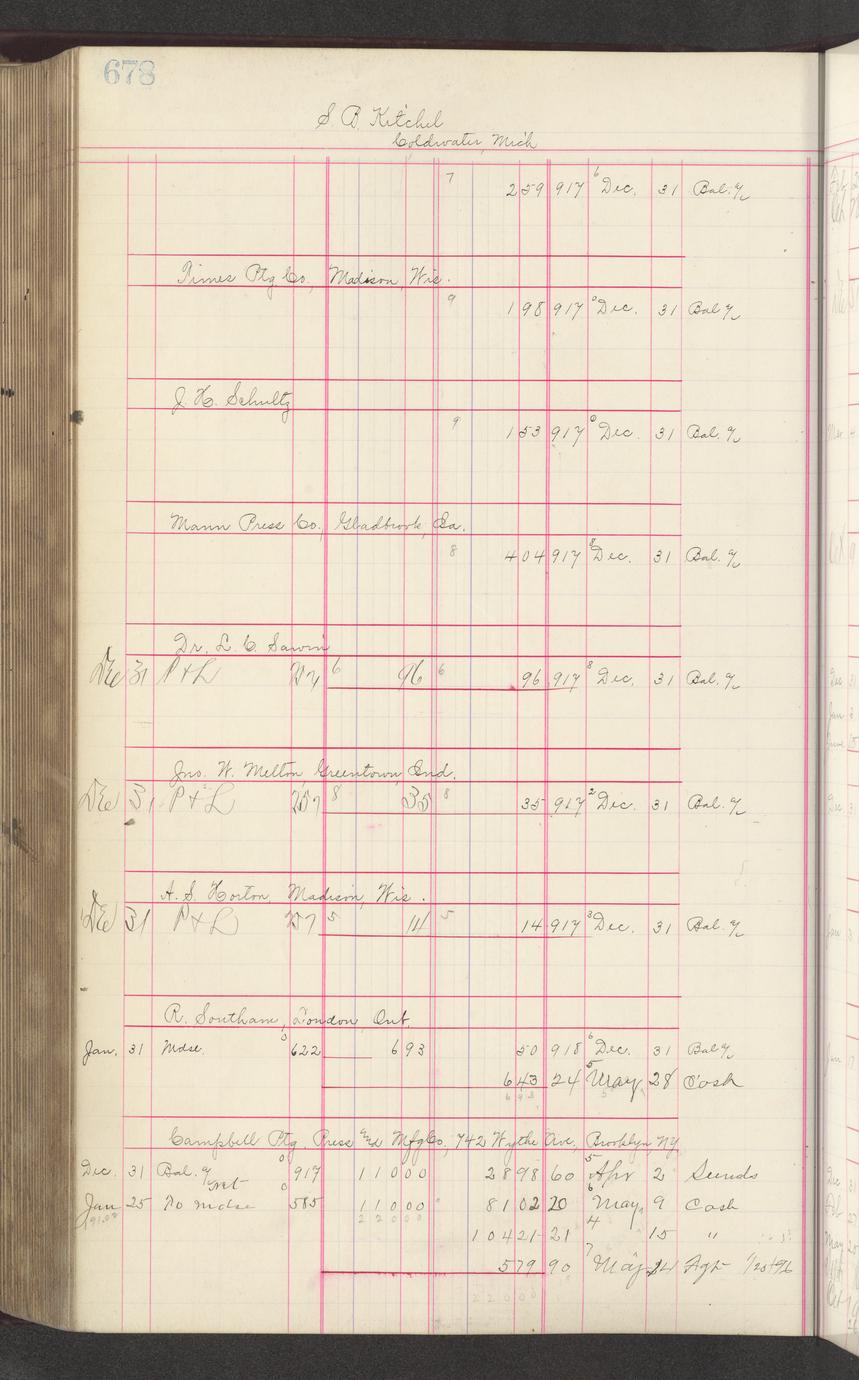 678
S. B. Kitchel
Coldwater, Mich
7 259 917 6 Dec. 31 Bal. %
Times Ptg Co., Madison, Wis.
9 198 917 0 Dec. 31 Bal %
J. H. Schultz
9 153 917 0 Dec. 31 Bal. %
Mann Press Co., Gladbrook, Ia.
8 404 917 8 Dec. 31 Bal. %
Dr. L. C. Sawin
Dec 31 P & L 6 96 6 96 917 8 Dec. 31 Bal. %
Jno. W. Melton, Greentown, Ind.
Dec 31 P & L 257 8 35 8 35 917 2 Dec. 31 Bal. %
A. S. Horton, Madison, Wis.
Dec 31 P & L 257 5 14 5 14 917 3 Dec. 31 Bal. %
R. Southam, London, Ont.
Jan. 31 Mdse. 0 622 693 50 918 6 Dec. 31 Bal %
643 24 5 May 28 Cash
693
Campbell Ptg. Press and Mfg Co, 742 Wythe Ave, Brooklyn NY
Dec. 31 Bal. % 0 917 11000 2898 60 5 Apr 2 Sunds
Jan 25 To mdse 0 585 11000 8102 20 6 May 9 Cash
22000
10421 21 4 15 "
579 90 7 May 24 Agt 1/25/96
22000